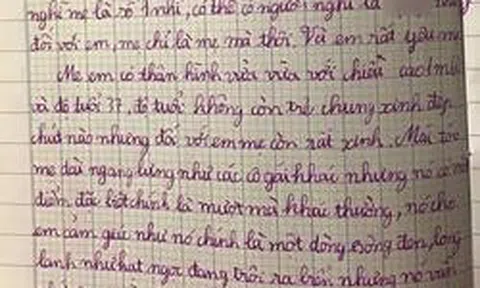 nghĩ mẹ là số 1 nhỉ, có thể có người nghĩ là
đối với em, mẹ chỉ là mẹ mà thôi. Và em rất yêu mẹ
Mẹ em có thân hình vừa vừa với chiều cao 1 mét
và độ tuổi 37, độ tuổi không còn trẻ chung xinh đẹp
chút nào nhưng đối với em mẹ còn rất xinh. Mái tóc
mẹ dài ngang lưng như các cô gái khác nhưng nó có
điểm đặc biệt chính là mượt mà khác thường, nó cho
em cảm giác như nó chính là một dòng sông đen, long
lanh như hạt ngọc đang trôi ra biển nhưng nó vẫn